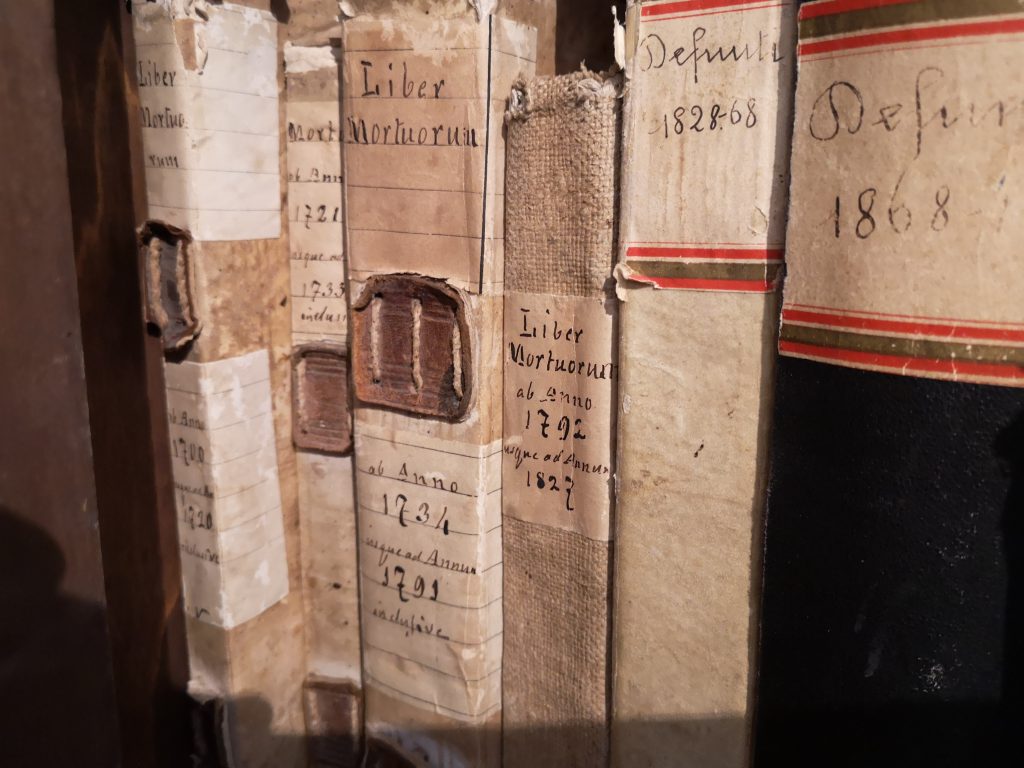 Liber
Mortuo
rum
ab Anno
1700
usque ad An
1720
inclusive
Mortu
ab Ann
1721
usque ad
1733
inclusi
Liber
Mortuorum
ab Anno
1734
usque ad Annum
1791
inclusive
Liber
Mortuorum
ab Anno
1792
usque ad Annum
1827
Defuncti
1828-68
Defun
1868-